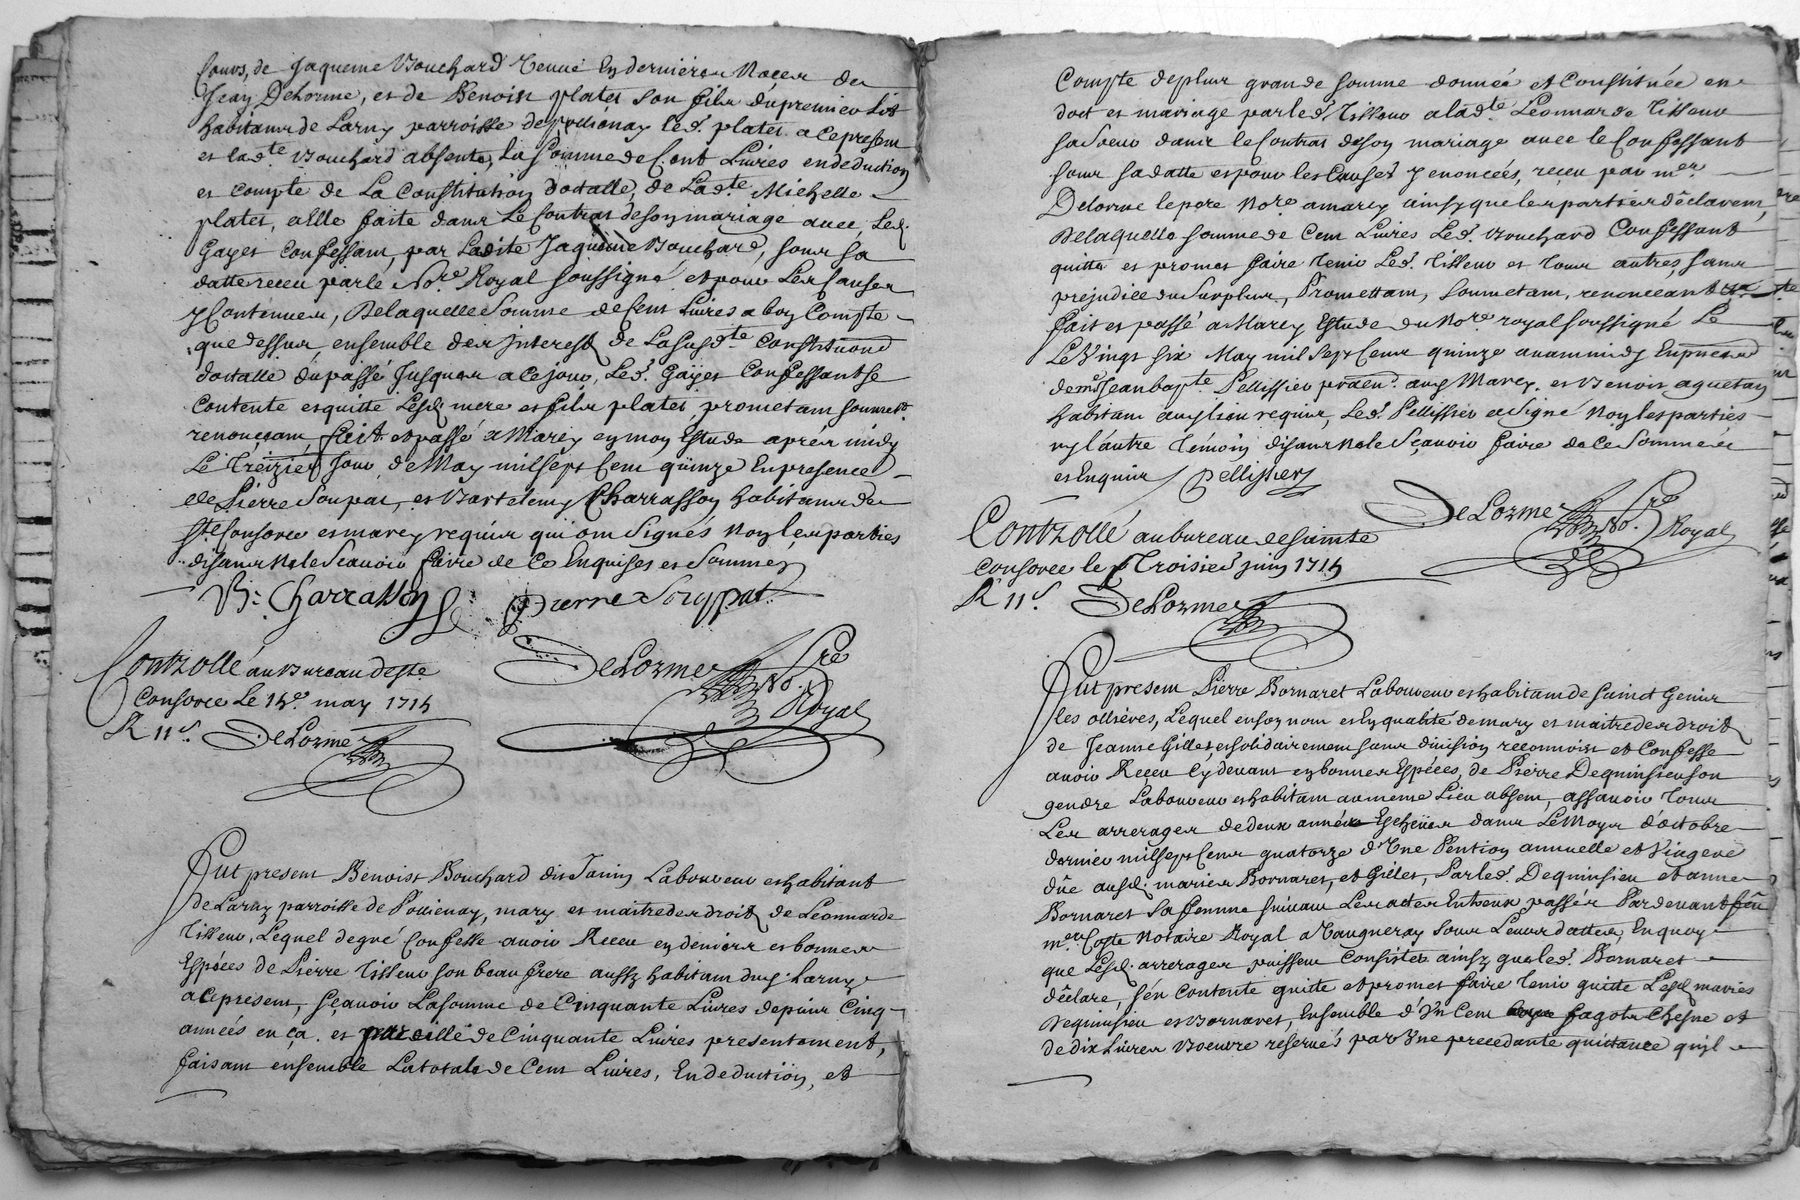 de Jaqueme Bouchard Veuve En dernieres Noces de
Jean Delorme, et de Benoist plates son fils du premier Lit
habitans de Larny parroisse de pollionay led. plates a ce present
et lad.te Bouchard absente, La somme de Cent Livres en deduction
et compte de La Constitution dottalle, de Lad.te Michelle
plates, a Elle faite dans Le Contrat de son mariage avec, Led.
Gayet Confessant, par Ladite Jaqueme Bouchard, sous sa
datte receu par le No.re Royal soussigné et pour Les Causes
y Contenues, De laquelle Somme de Cent Livres a bon Compte
que dessus, ensemble des Interests de La susd.te Constitution
dottalle du passé Jusques a ce jour, Led. Gayet Confessant se
Contente et quitte Lesd. mere et fils plates, prometant soumett.
renonçant, fait et passé a Marcy en mon Estude aprés midy
Le Treizieé Jour de May mil sept Cent quinze En presence
de Pierre Soupat, et Bartelemy Charrasson habitans de
S.te Consorce et marcy requis qui ont Signés Non les parties
disans Ne le Scavoir faire de Ce Enquises et Sommés
B: Charrasson Pierre Soupat
Controllé au Bureau de Ste
Consorce Le 14.e may 1715
R 11 s. DeLorme
DeLorme No.re Royal
Fut present Benoist Bouchard dit Janin Laboureur et habitant
de Larny parroisse de Pollienay, mary et maitre des droits de Leonnarde
Tisseur, Lequel de gré Confesse avoir Receu en deniers et bonnes
Espéces de Pierre Tisseur son beau frere aussy habitant dud. Larny
a ce present, sçavoir La somme de Cinquante Livres depuis Cinq
années en ça. et pareille de Cinquante Livres presentement,
faisant ensemble La totale de Cent Livres, En deduction, et
Compte de plus grande somme donnée et Constituée en
dot et mariage par led. Tisseur a lad.te Leonnarde Tisseur
sa Soeur dans le Contrat de son mariage avec le Confessant
sous sa datte et pour les Causes y enoncées, receu par m.er
Delorme le pere No.re a marcy ainsy que les parties déclarent,
De laquelle somme de Cent Livres Led. Bouchard Confessant
quitte et promet faire tenir Led. Tisseur et tous autres, sans
prejudice du Surplus, Promettant, soumetant, renonceant
fait et passé a Marcy Estude du No.re royal soussigné Le
Le Vingt six May mil sept Cent quinze avant midy En presence
de m.e Jean bapte Pellissier au d. Marcy, et Benoit aquetan
habitant aud. lieu requis, Led. Pellissier a Signé Non les parties
ny l'autre Témoin disans Ne le Sçavoir faire de Ce Sommés
et Enquis Pellissier
DeLorme No.re Royal
Controllé au bureau de sainte
Consorce le Troisieé juin 1715
R 11 s. DeLorme
Fut present Pierre Bornaret Laboureur et habitant de Sainct Genis
les ollières, Lequel en son nom et En qualité de mary et maitre des droits
de Jeanne Gilles, et solidairement sans division reconnoist et Confesse
avoir Receu Cy devant en bonnes Espéces, de Pierre Dequinsieu son
gendre Laboureur et habitant au meme Lieu absent, assavoir tous
Les arrerages de deux années Echeües dans Le Moys d'octobre
dernier mil sept Cent quatorze d'Une Pention annuelle et Viagere
dûe ausd. mariés Bornaret, et Gilles, Par led. Dequinsieu et anne
Bornaret sa femme suivant Les actes Entreux passés Pardevant feu
m.er Coste Notaire Royal a Vaugneray sous Leurs dattes, En quoy
que Lesd. arrerages puissent Consister ainsy que led. Bornaret
déclare, s'en Contente quitte et promet faire tenir quitte Lesd. mariés
Dequinsieu et Bornaret, Ensemble d'Un Cent fagots Chesne et
de dix Livres Boeurre réservés par Une precedante quittance qu'il